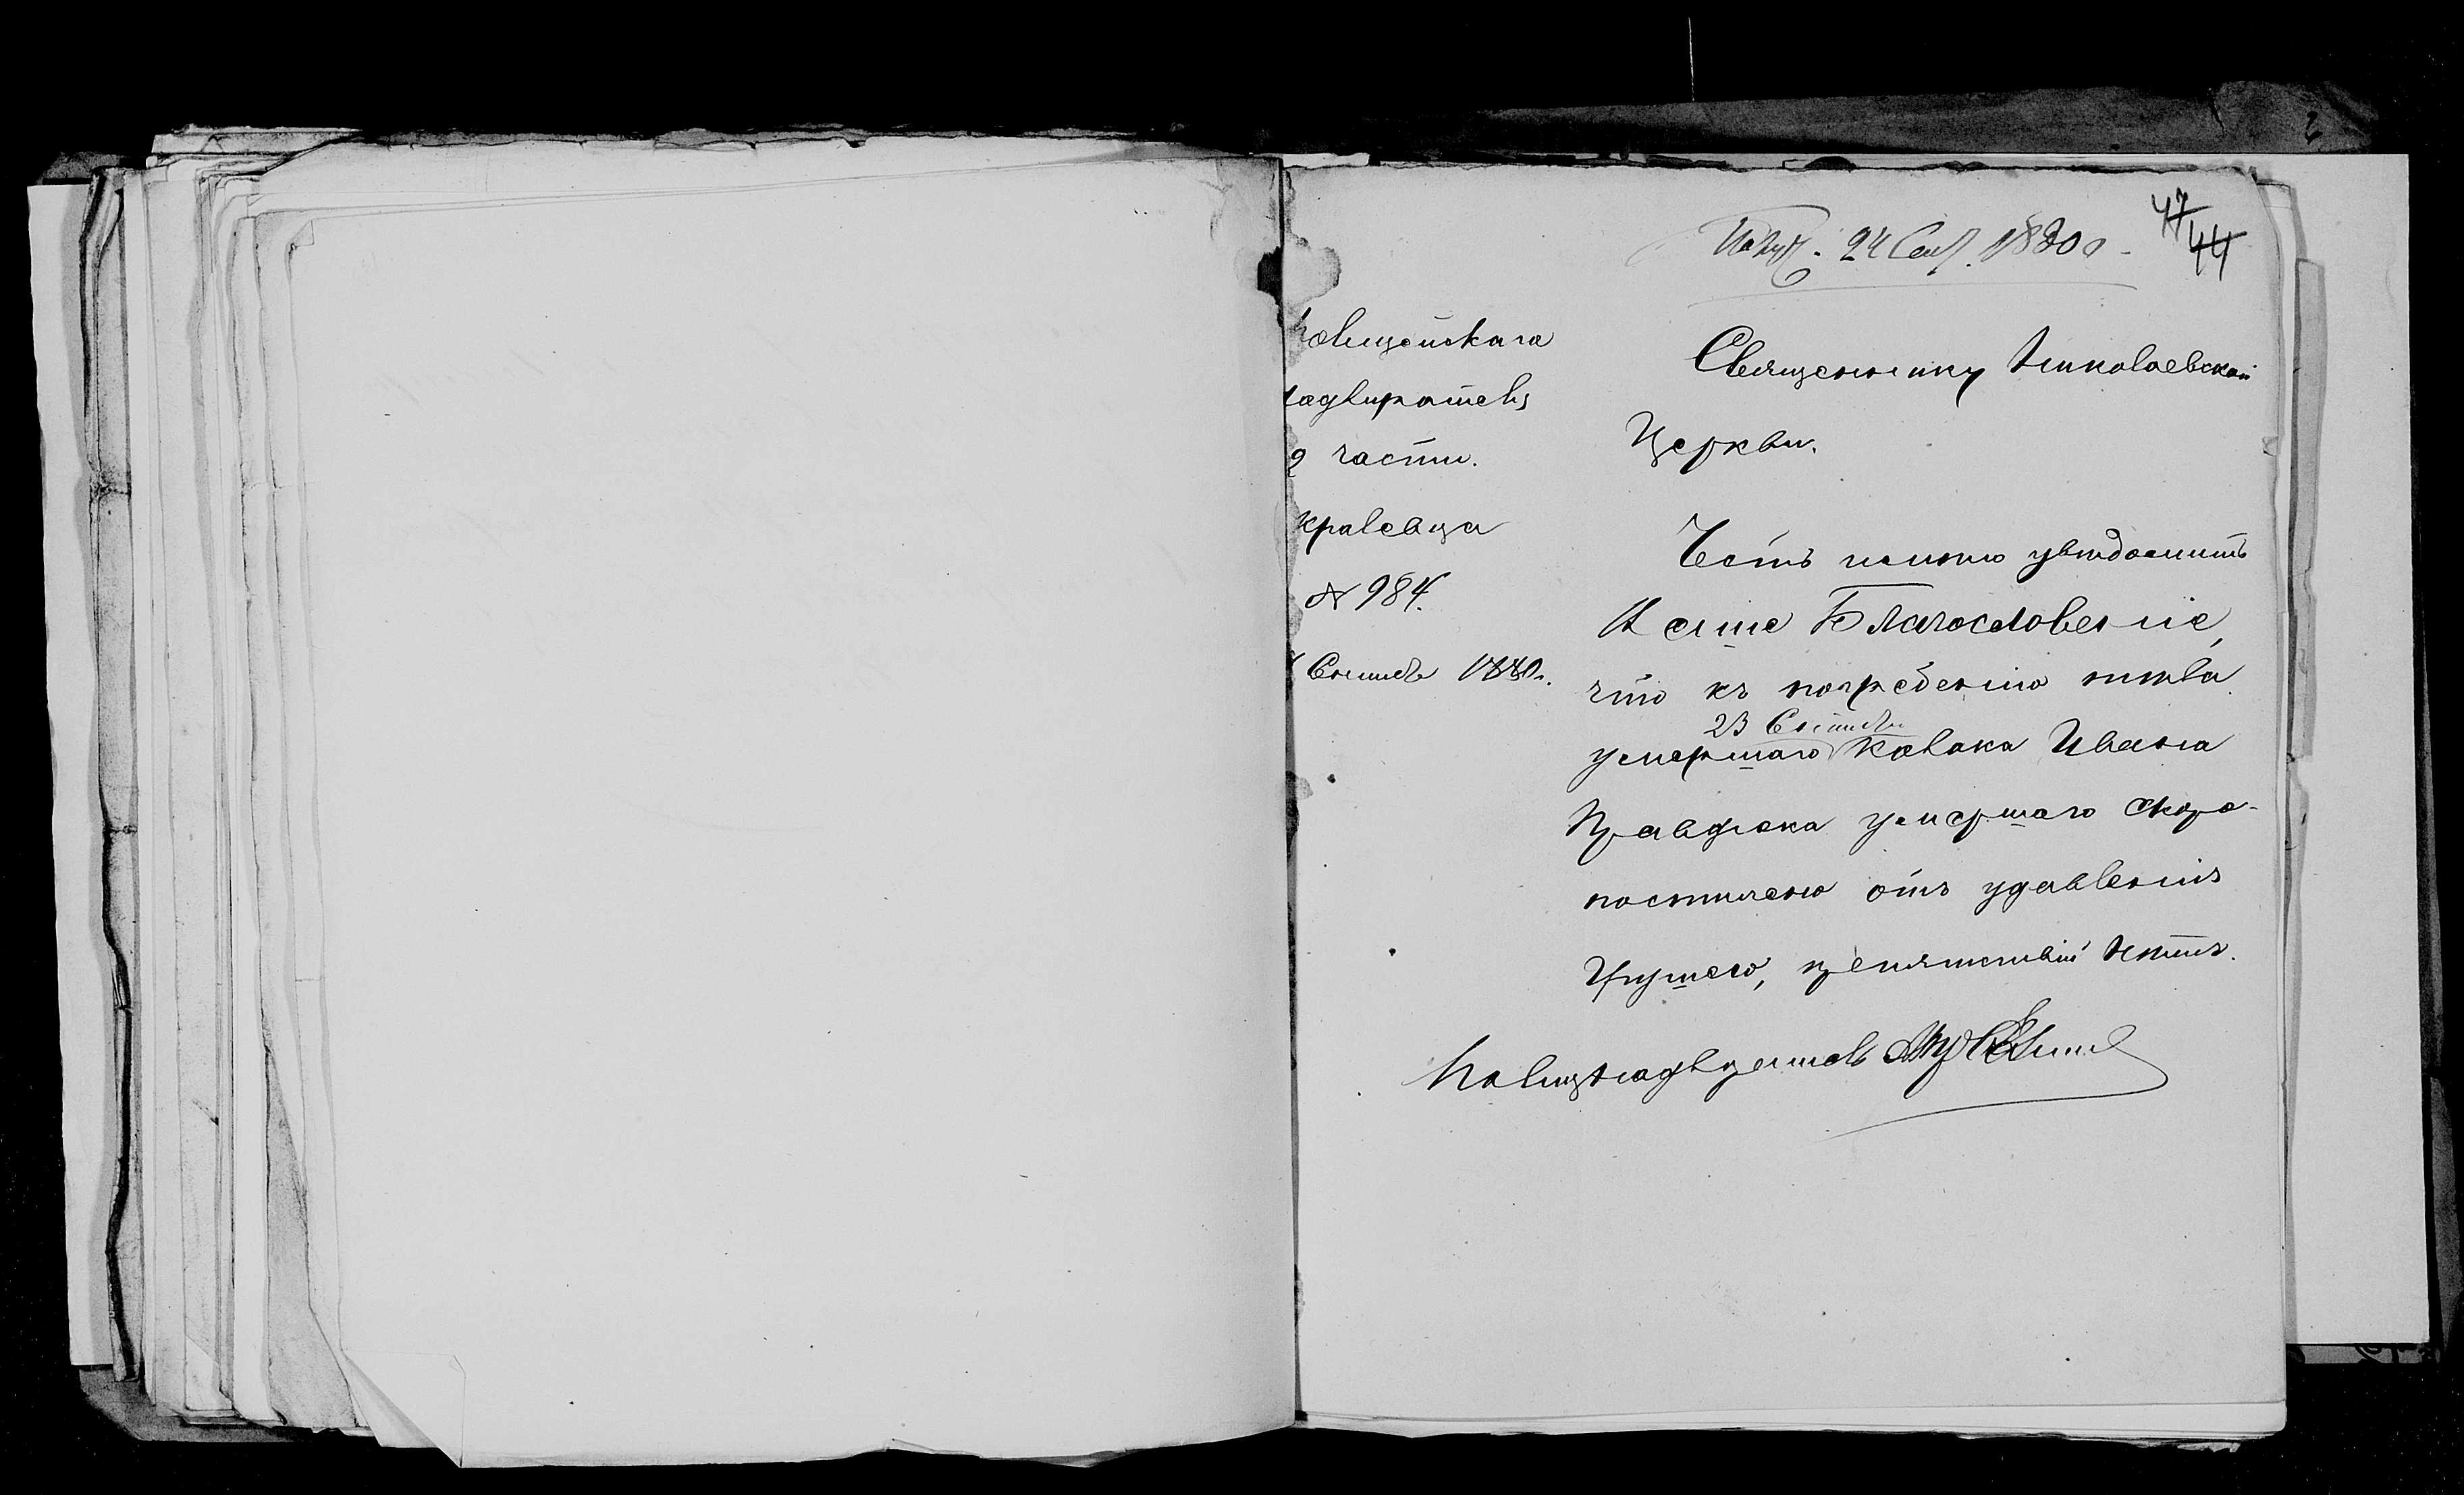 47
44
Получ. 24 Сент. 1880 г.
Полицейскаго
надзирателя
2 части.
Кролевца
№ 984.
Сентяб 1880 г.
Священнику Николаевской
Церкви.
Честь имею уведомить
Ваше Благословеніе,
что къ погребенію тѣла
23 Сентяб
умершаго козака Ивана
Правдюка умершаго скоро-
постижно отъ удавленія
грушею, препятствій нѣтъ.
Полицнадзиратель